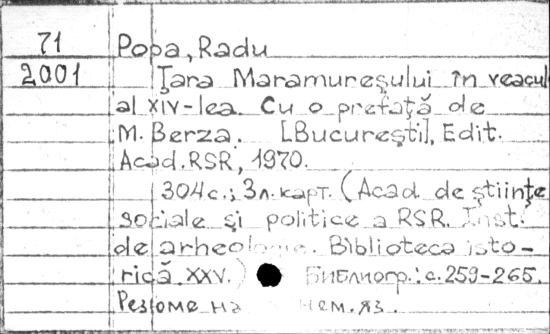 71 Popa, Radu
2001 Ţara Maramureşului în veacul
al XIV-lea. Cu o prefaţă de
M. Berza. [Bucureşti], Edit.
Acad. RSR, 1970.
304 с.; 3 л. карт. (Acad. de ştiinţe
sociale şi politice a RSR. Inst.
de arheologie. Biblioteca isto-
rică. XXV.) Библиогр.: с. 259-265.
Резюме на нем. яз.